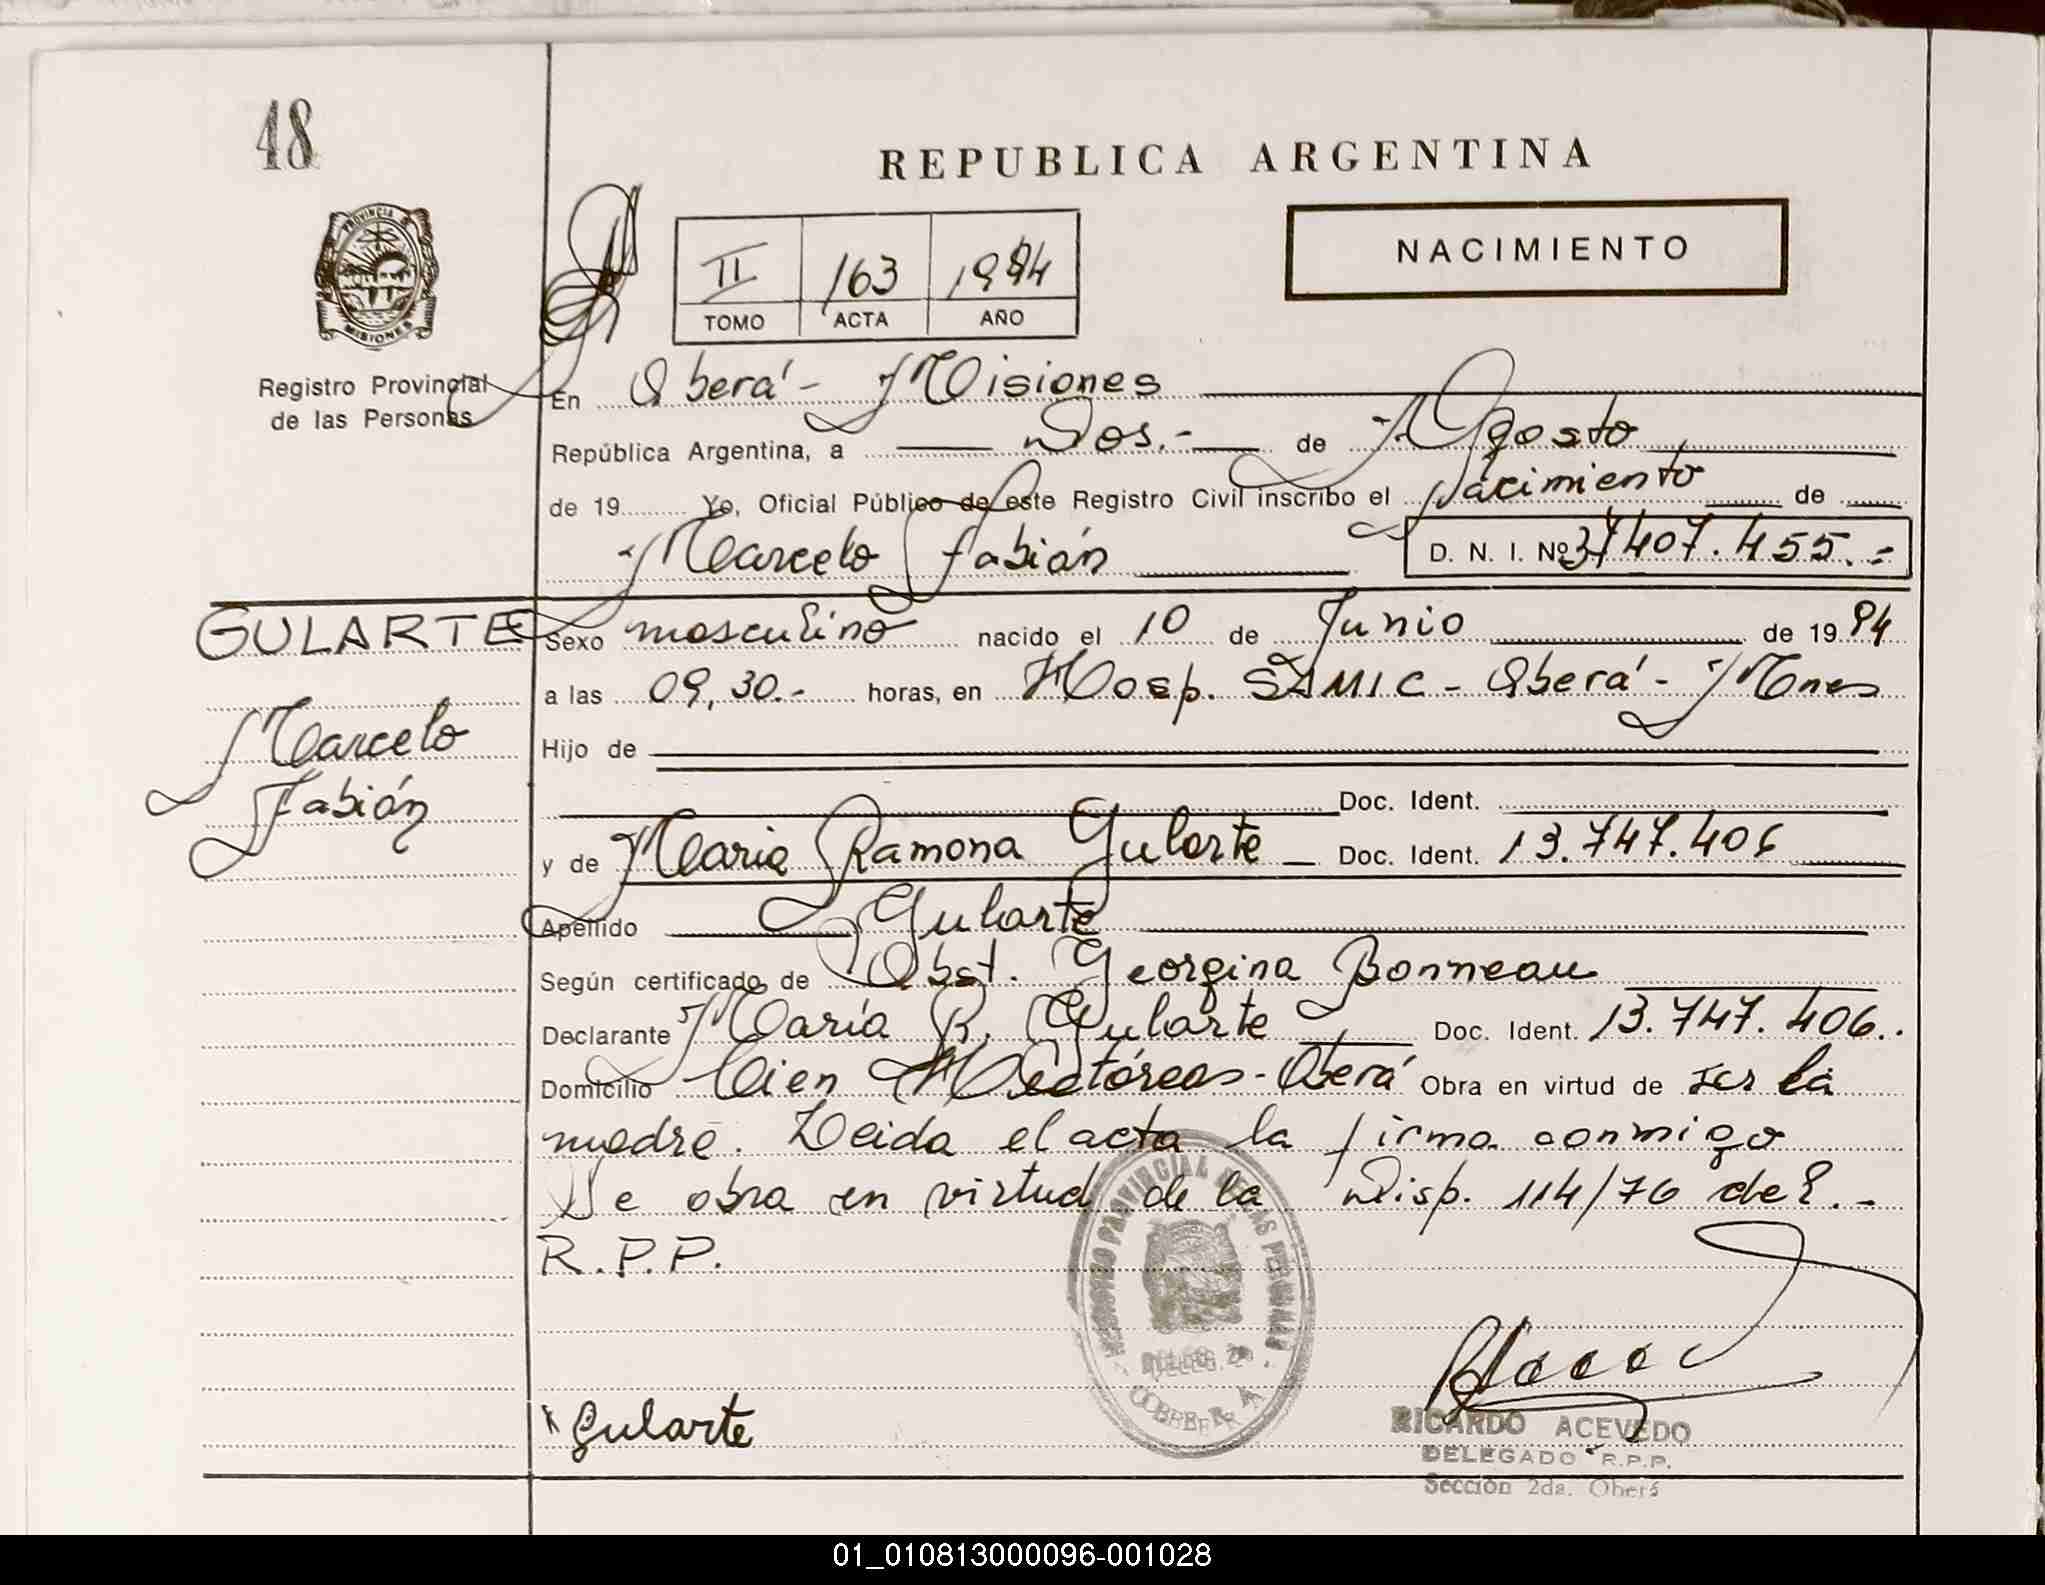 48
REPUBLICA ARGENTINA
NACIMIENTO
PROVINCIA DE
MISIONES
II 163 1994
TOMO ACTA AÑO
Registro Provincial
de las Personas
En Oberá - Misiones
República Argentina, a Dos.- de Agosto
de 19 Yo, Oficial Público de este Registro Civil inscribo el Nacimiento de
Marcelo Fabián D. N. I. Nº 37407.455.-
GULARTE
Marcelo
Fabián
Sexo masculino nacido el 10 de Junio de 19 94
a las 09,30.- horas, en Hosp. SAMIC - Oberá - Mnes
Hijo de
Doc. Ident.
y de Maria Ramona Gularte Doc. Ident. 13.747.406
Apellido Gularte
Según certificado de Obst. Georgina Bonneau
Declarante María R. Gularte Doc. Ident. 13.747.406.
Domicilio Cien Hectáreas - Oberá Obra en virtud de ser la
madre. Leida el acta la firma conmigo
Se obra en virtud de la Disp. 114/76 del.-
R.P.P.
REGISTRO PROVINCIAL DE LAS PERSONAS
Gularte
RICARDO ACEVEDO
DELEGADO R.P.P.
Sección 2da. Oberá
01_010813000096-001028